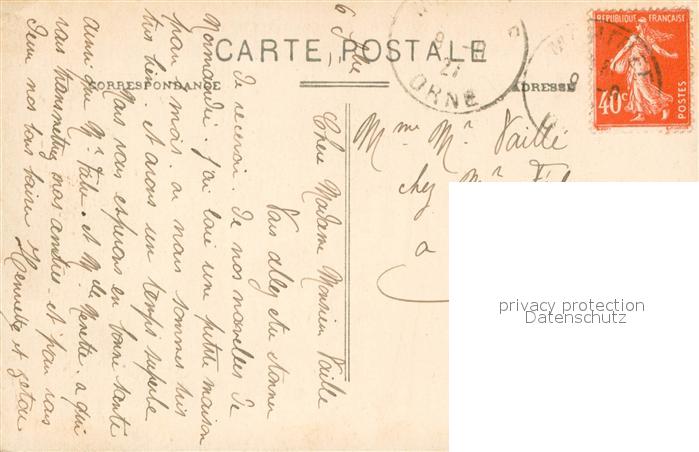 CARTE POSTALE
CORRESPONDANCE
ADRESSE
RÉPUBLIQUE FRANÇAISE
40c
POSTES
ORNE
9
21
6 7bre
Chere Madame Monsieur Vaillé
Vous allez etre etonner
de recevoir de nos nouvelles de
Normandie. J'ai loué une petite maison
pour 1 mois. ou nous sommes tres
tres bien. et avons un temps superbe
Nous vous esperons en bonne santé
ainsi que Mr et Me a qui
vous transmettrez nos amities. et pour vous
deux nos bons baisers
Henriette et
Mme Mr Vaillé
chez Mr
a
privacy protection
Datenschutz